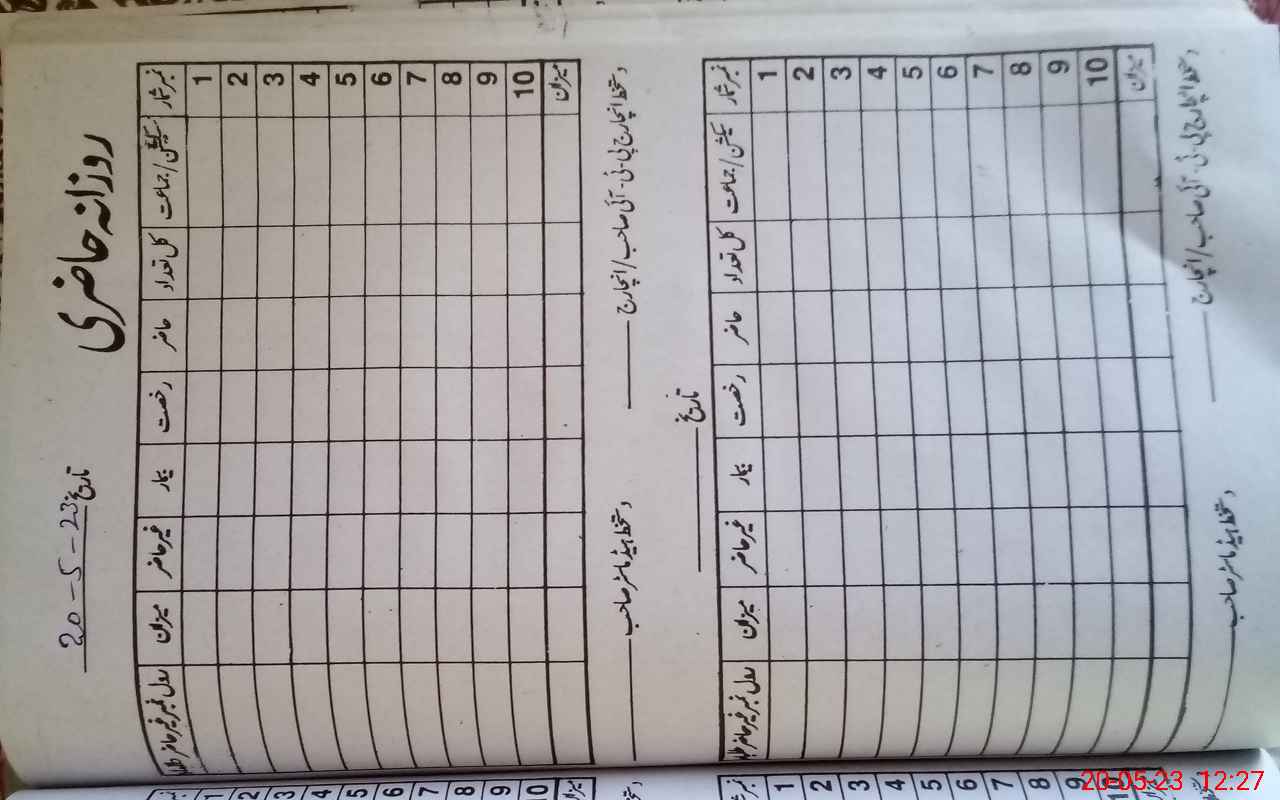 روزانہ حاضری
تاریخ 20-5-23
نمبر شمار سیکشن/جماعت کل تعداد حاضر رخصت بیمار غیر حاضر میزان رول نمبر غیر حاضر طلباء
1
2
3
4
5
6
7
8
9
10
میزان
دستخط انچارج پی-ٹی-آئی صاحب/انچارج دستخط ہیڈ ماسٹر صاحب
تاریخ
نمبر شمار سیکشن/جماعت کل تعداد حاضر رخصت بیمار غیر حاضر میزان رول نمبر غیر حاضر طلباء
1
2
3
4
5
6
7
8
9
10
میزان
دستخط انچارج پی-ٹی-آئی صاحب/انچارج دستخط ہیڈ ماسٹر صاحب
1
2
3
4
5
6
7
8
9
10
میزان
1
2
3
4
5
6
7
8
9
10
20-05-23 12:27